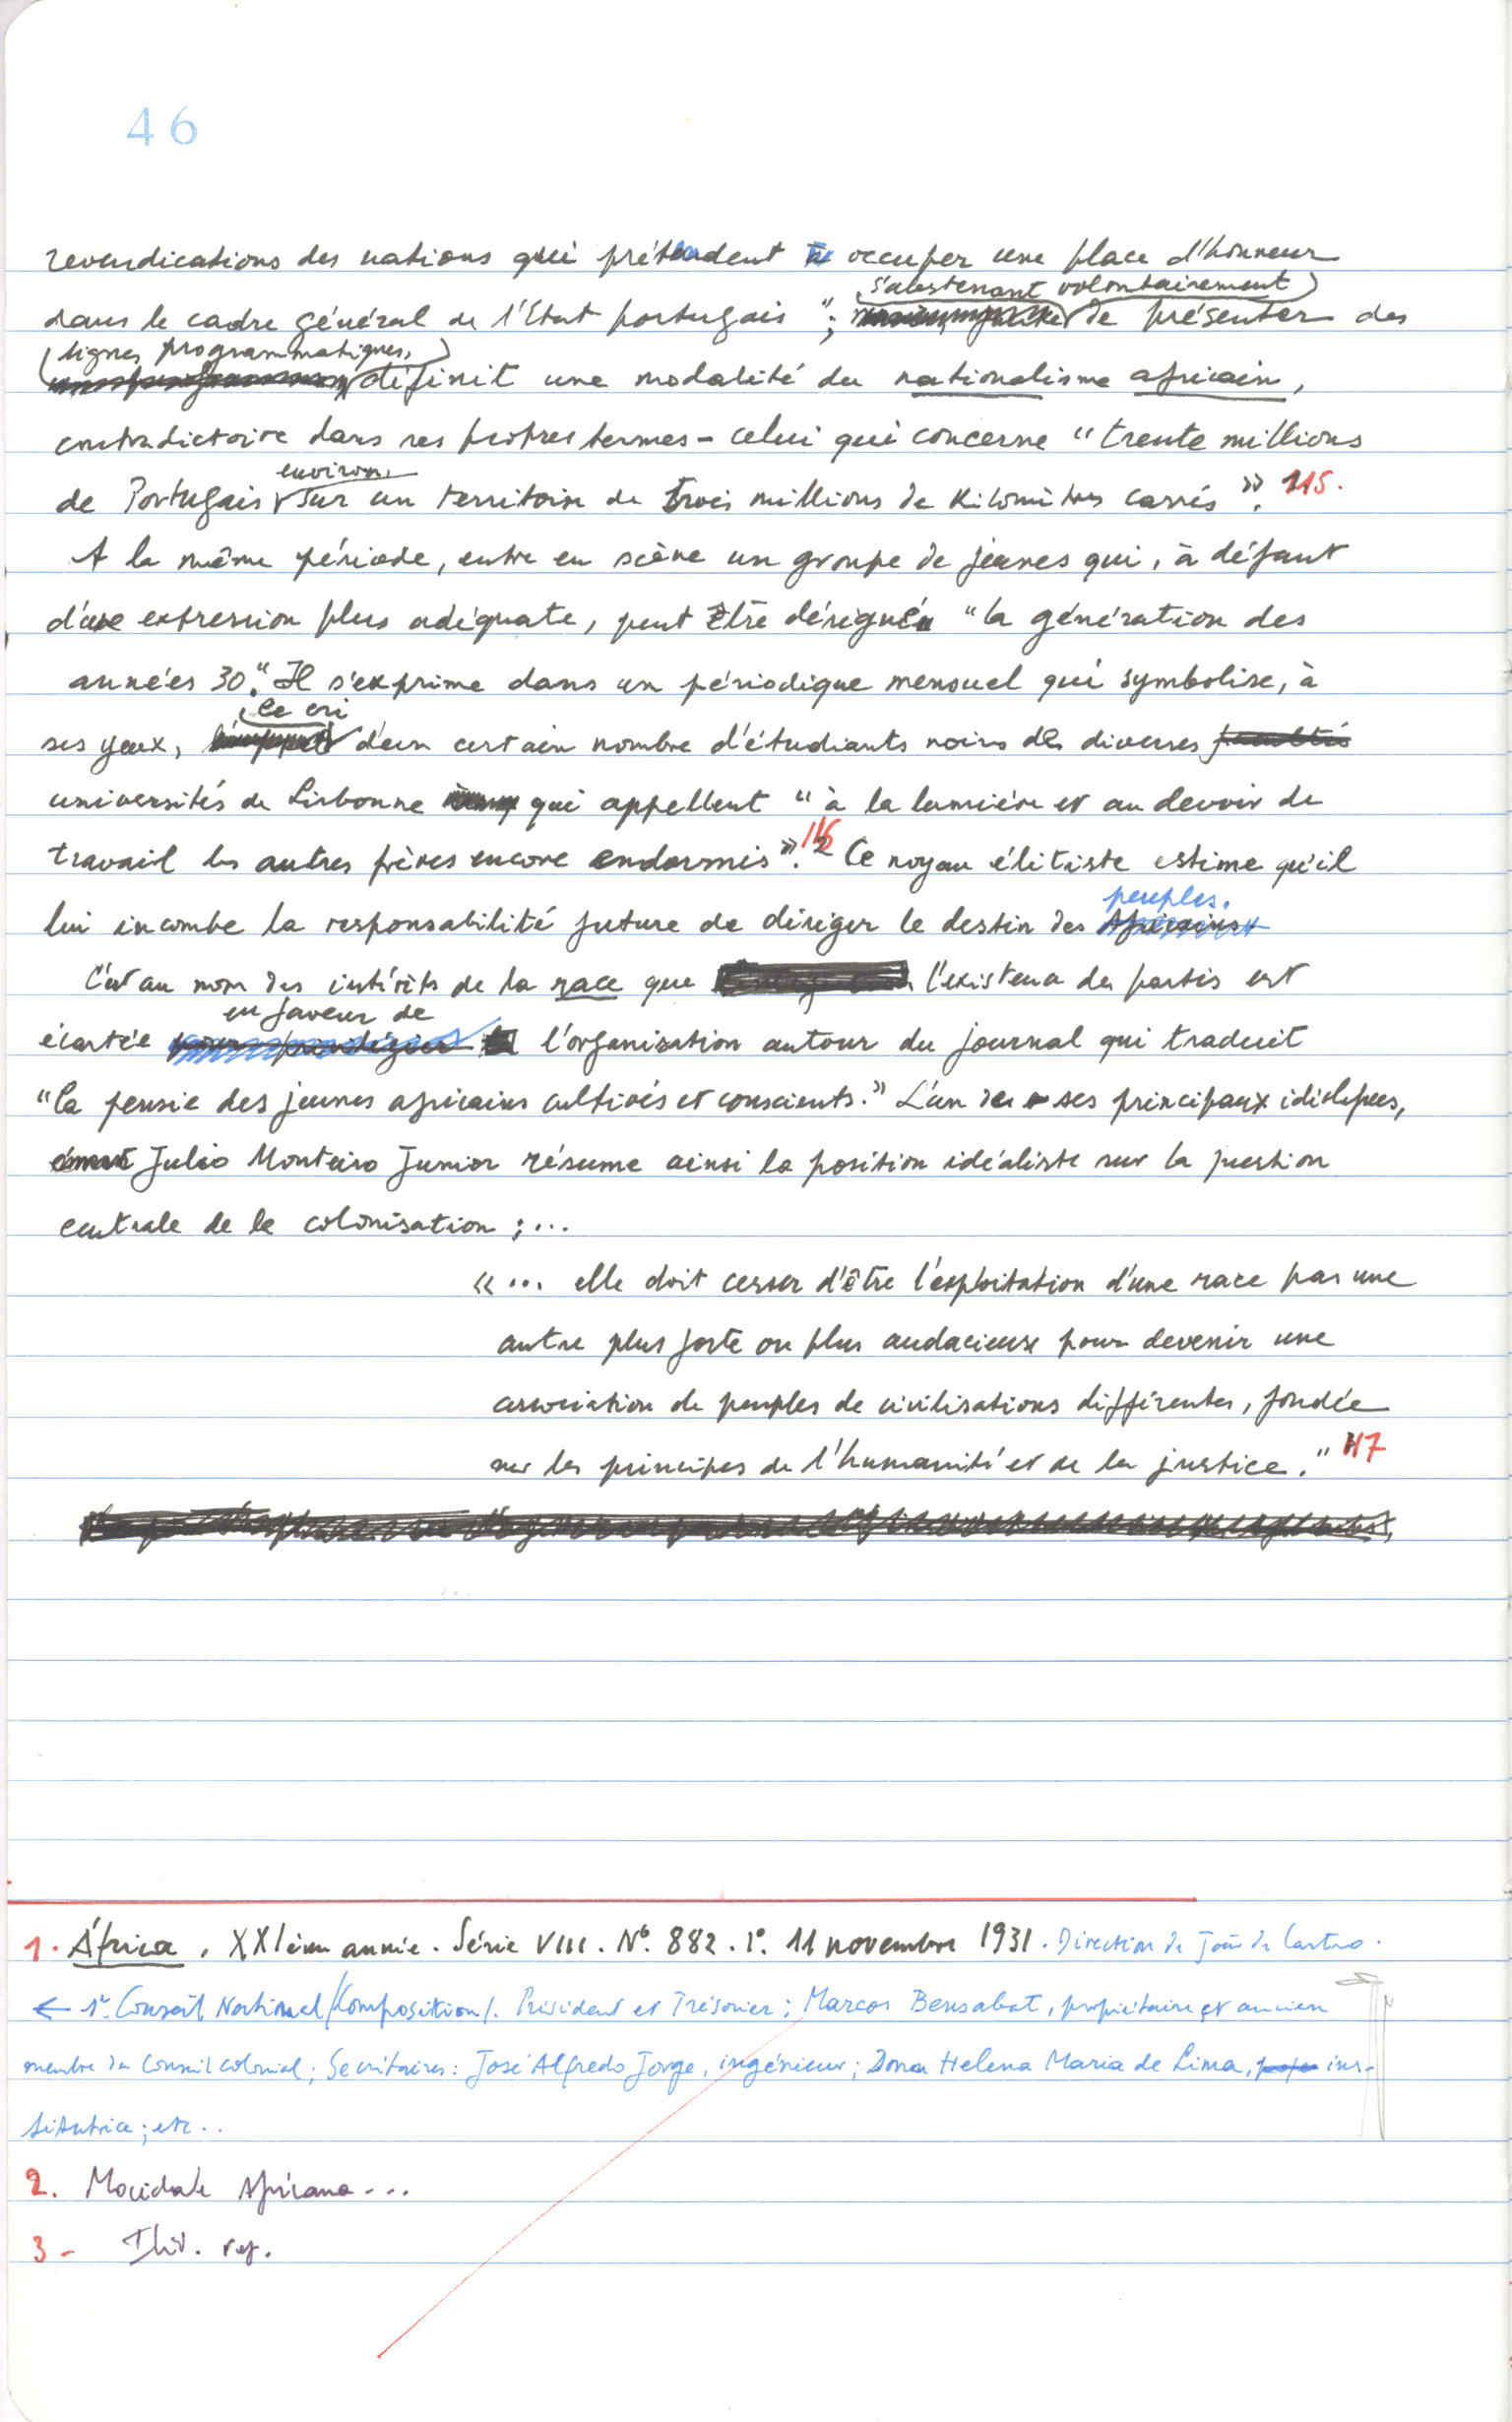 46
revendications des nations qui prétendent occuper une place d'honneur
s'abstenant volontairement
dans le cadre général de l'Etat portugais "; de présenter des
lignes programmatiques,
définit une modalité du nationalisme africain,
contradictoire dans ses propres termes - celui qui concerne "trente millions
environ
de Portugais sur un territoire de trois millions de kilomètres carrés". 115.
A la même période, entre en scène un groupe de jeunes qui, à défaut
d'une expression plus adéquate, peut être désigné "la génération des
années 30". Il s'exprime dans un périodique mensuel qui symbolise, à
le cri
ses yeux, d'un certain nombre d'étudiants noirs des diverses facultés
universités de Lisbonne qui appellent "à la lumière et au devoir de
travail les autres frères encore endormis". 116 Ce noyau élitiste estime qu'il
peuples.
lui incombe la responsabilité future de diriger le destin des Africains
C'est au nom des intérêts de la race que l'existence de partis est
en faveur de
écartée l'organisation autour du journal qui traduit
"la pensée des jeunes africains cultivés et conscients." L'un de ses principaux idéologues,
Julio Monteiro Junior résume ainsi la position idéaliste sur la question
centrale de la colonisation ; ...
« ... elle doit cesser d'être l'exploitation d'une race par une
autre plus forte ou plus audacieuse pour devenir une
association de peuples de civilisations différentes, fondée
sur les principes de l'humanité et de la justice." 117
1. África, XXIème année. Série VIII. Nº. 882. 1º. 11 novembre 1931. Direction de João de Castro.
← 1er Conseil National/Composition/. Président et Trésorier : Marcos Bensabat, propriétaire et ancien
membre du Conseil colonial ; Secrétaires : José Alfredo Jorge, ingénieur ; Dona Helena Maria de Lima, ins-
titutrice ; etc..
2. Mocidade Africana...
3 - Ibid. ref.